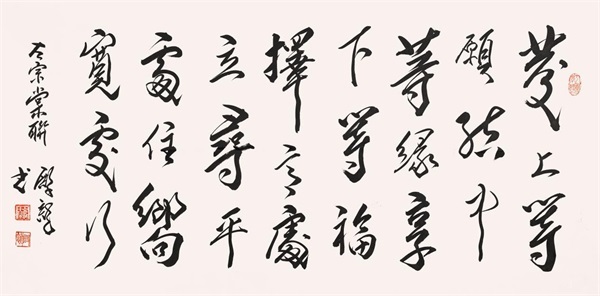 發上等
願結中
等緣享
下等福
擇高處
立尋平
處住嚮
寬處行
左宗棠聯